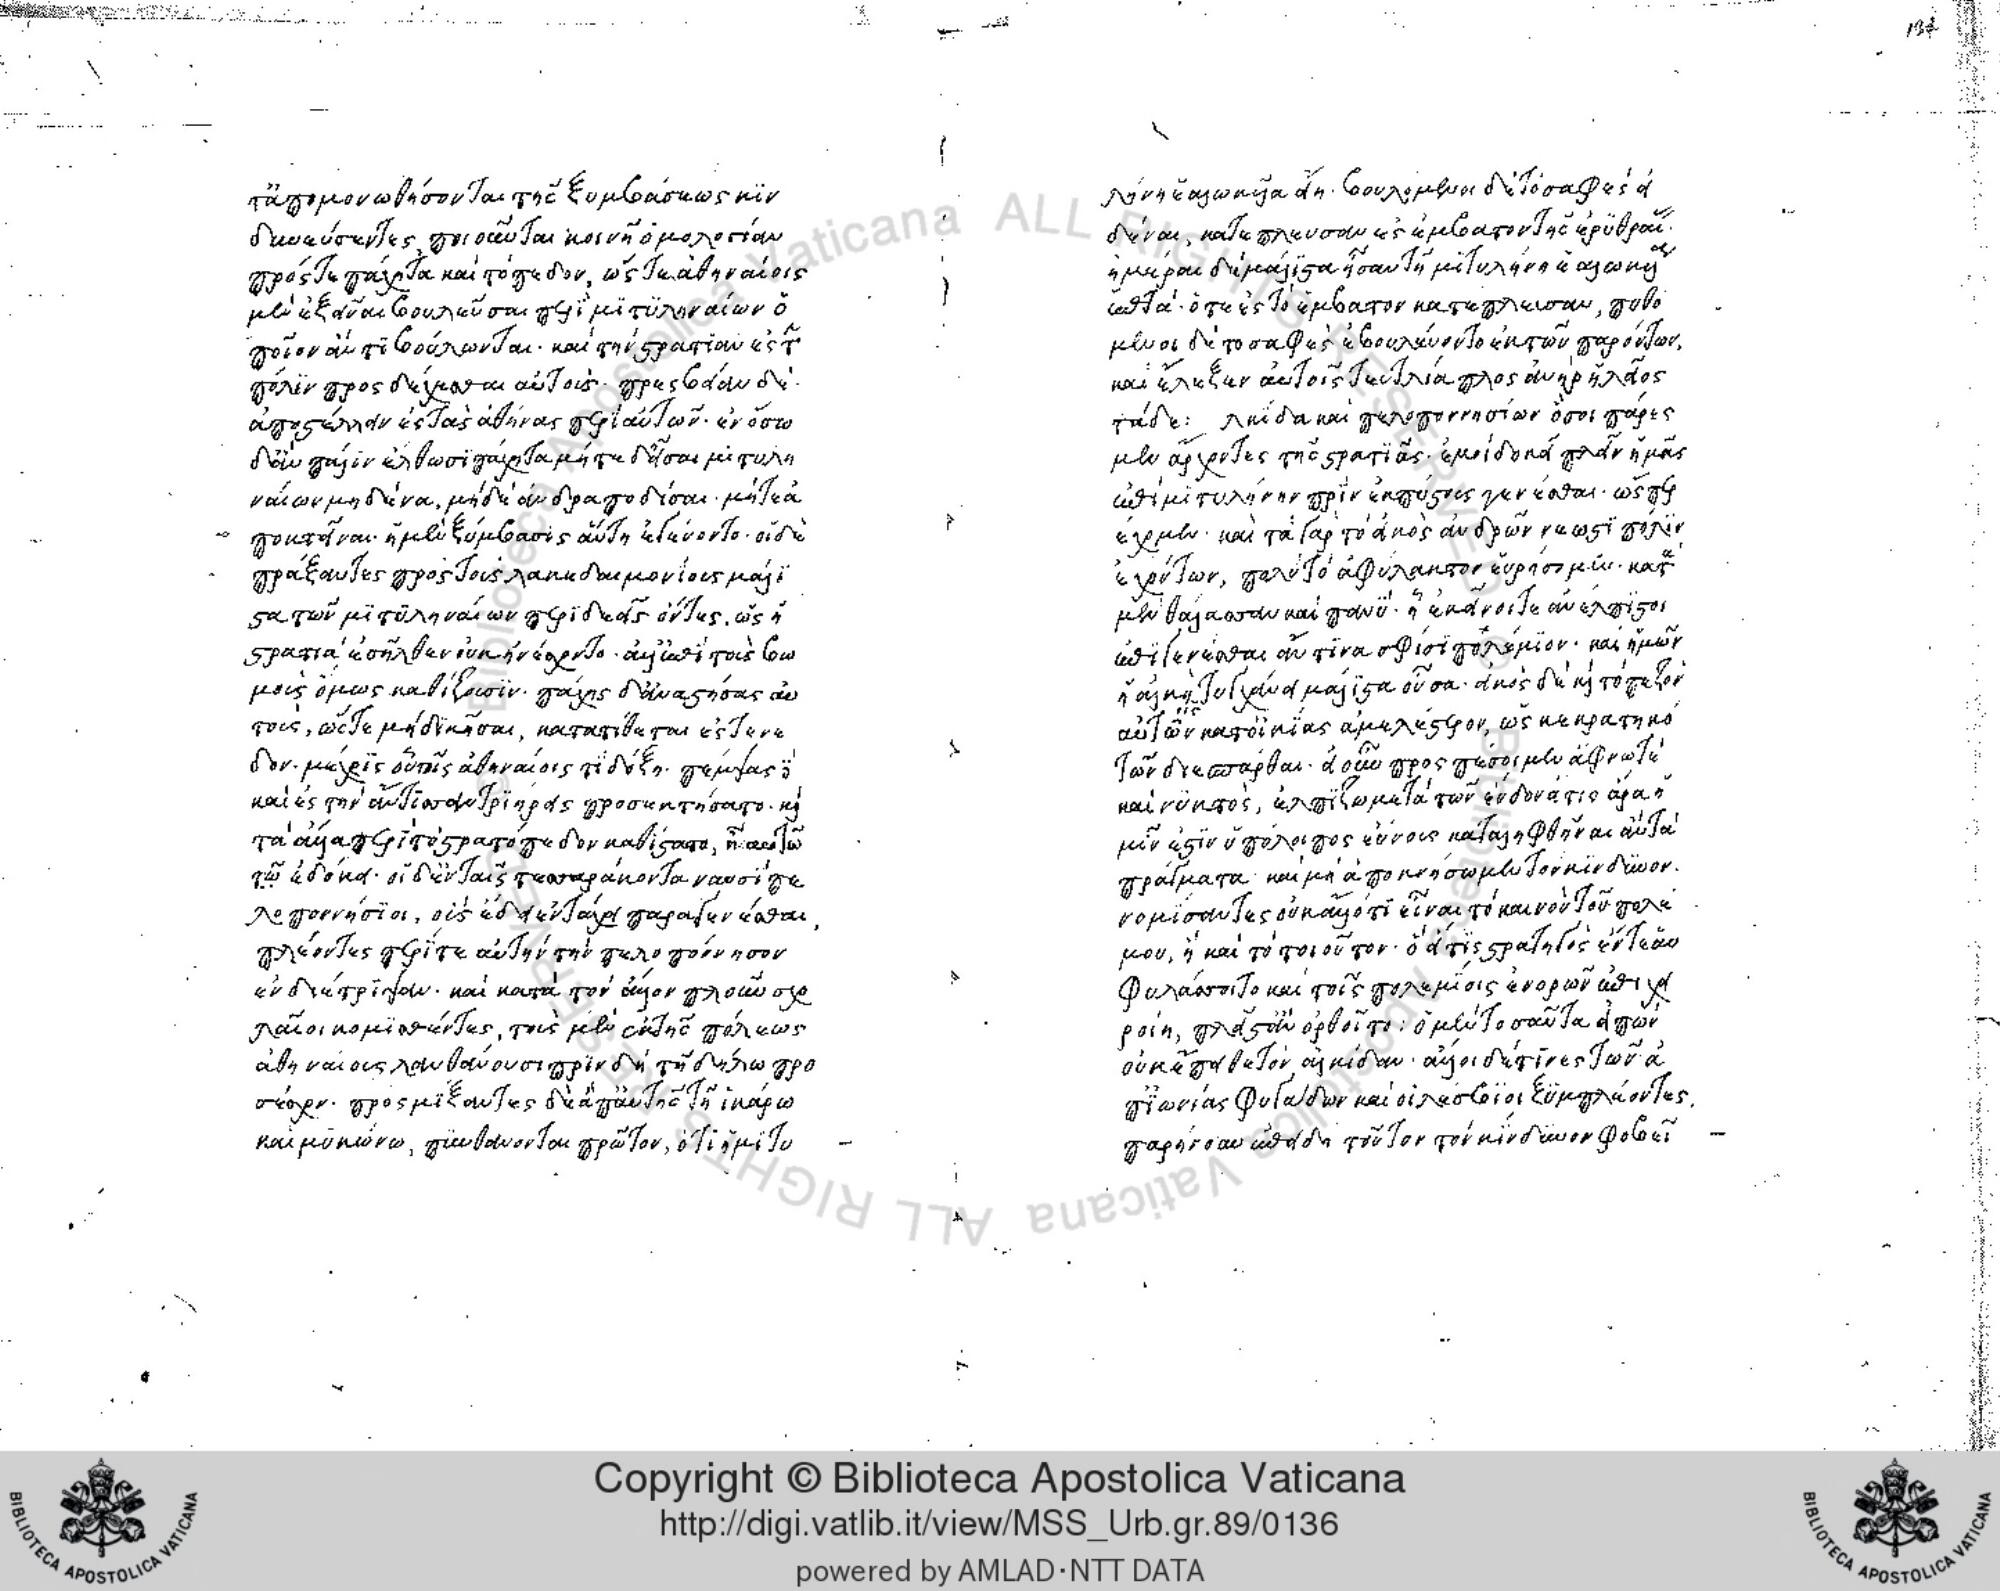 τ' ἀπομονωθήσονται τῆς ξυμβάσεως κιν
δυνεύσοντες, ποιοῦνται κοινῇ ὁμολογίαν
πρός τε πάχητα καὶ τὸ πεδον, ὥστε ἀθηναίοις
μὲν ἐξεῖναι βουλεῦσαι περὶ μιτυληναίων ὁ
ποῖον ἄν τι βούλωνται· καὶ τὴν στρατιὰν ἐς τὴν
πόλιν προσδέχεσθαι αὐτούς· πρεσβείαν δὲ
ἀποστέλλειν ἐς τὰς ἀθήνας περὶ αὑτῶν· ἐν ὅσω
δ' ἂν πάλιν ἔλθωσι πάχητα μήτε δῆσαι μιτυλη
ναίων μηδένα, μηδὲ ἀνδραποδίσαι· μήτε ἀ
ποκτεῖναι· ἡ μὲν ξύμβασις αὕτη ἐγένοντο· οἱ δὲ
πράξαντες πρὸς τοὺς λακεδαιμονίους μάλι
στα τῶν μιτυληναίων περιδεεῖς ὄντες, ὡς ἡ
στρατιὰ ἐσῆλθεν οὐκ ἠνέσχοντο· ἀλλ' ἐπὶ τοὺς βω
μοὺς ὅμως καθίζουσιν· πάχης δ' ἀναστήσας αὐ
τοὺς, ὥστε μὴ ἀδικῆσαι, κατατίθεται ἐς τενε
δον· μέχρις οὗ τοῖς ἀθηναίοις τι δόξη· πέμψας
καὶ ἐς τὴν ἄντισσαν τριήρας προσεκτήσατο· καὶ
τὰ ἄλλα περὶ τὸ στρατόπεδον καθίστατο, ἧ αὐτῶ
ἐδόκει· οἱ δ' ἐν ταῖς τεσσαράκοντα ναυσὶ πε
λοποννήσιοι, οὓς ἔδει ἐν τάχει παραγενέσθαι,
πλέοντες περί τε αὐτὴν τὴν πελοπόννησον
ἐνδιέτριψαν· καὶ κατὰ τὸν ἄλλον πλοῦν σχο
λαῖοι κομισθέντες, τοὺς μὲν ἐκ τῆς πόλεως
ἀθηναίους λανθάνουσι πρὶν δὴ τῇ δήλω προ
σέσχον· προσμίξαντες δὲ ἀπ' αὐτῆς τῇ ἰκάρω
καὶ μυκώνω, πυνθάνονται πρῶτον, ὅτι ἡ μιτυ
λήνη ἑάλωκε· βουλόμενοι δὲ τὸ σαφὲς εἰ
δέναι, κατέπλευσαν ἐς ἔμβατον τῆς ἐρυθραί·
ἡμέραι δὲ μάλιστα ἦσαν τῇ μιτυλήνη ἑαλωκυία
ἑπτά· ὅτε ἐς τὸ ἔμβατον κατέπλευσαν, πυθό
μενοι δὲ τὸ σαφὲς ἐβουλεύοντο ἐκ τῶν παρόντων,
καὶ ἔλεξεν αὐτοῖς τευτλίαπλος ἀνὴρ ἠλεῖος
τάδε: Ἀλκίδα καὶ πελοποννησίων ὅσοι πάρεσ
μεν ἄρχοντες τῆς στρατιᾶς· ἐμοὶ δοκεῖ πλεῖν ἡμᾶς
ἐπὶ μιτυλήνην πρὶν ἐκπύστους γενέσθαι· ὥσπερ
ἔχομεν· κατὰ γὰρ τὸ εἰκὸς ἀνδρῶν νεωστὶ πόλιν
ἐχόντων, πολὺ τὸ ἀφύλακτον εὑρήσομεν· κατὰ
μὲν θάλασσαν καὶ πάνυ· ἧ ἐκεῖνοί τε ἀνέλπιστοι
ἐπιγενέσθαι ἄν τινα σφίσι πολέμιον· καὶ ἡμῶν
ἡ ἀλκὴ τυγχάνει μάλιστα οὖσα· εἰκὸς δὲ καὶ τὸ πεζὸν
αὐτῶν κατ' οἰκίας ἀμελέστερον, ὡς κεκρατηκό
των διεσπάρθαι· εἰ οὖν προσπέσοιμεν ἄφνω τε
καὶ νυκτὸς, ἐλπίζω μετὰ τῶν ἔνδον εἴ τις ἄρα ἡ
μῖν ἐστιν ὑπόλοιπος εὔνους καταληφθῆναι ἂν τὰ
πράγματα· καὶ μὴ ἀποκνήσωμεν τὸν κίνδυνον·
νομίσαντες οὐκ ἄλλό τι εἶναι τὸ καινὸν τοῦ πολέ
μου, ἢ καὶ τὸ τοιοῦτον· ὃ εἴ τις στρατηγὸς ἔν τε αὑ
φυλάσσοιτο καὶ τοῖς πολεμίοις ἐνορῶν ἐπιχει
ροίη, πλεῖστ' ἂν ὀρθοῖτο: ὁ μὲν τοσαῦτα εἰπὼν
οὐκ ἔπειθε τὸν ἀλκίδαν· ἄλλοι δέ τινες τῶν ἀ
π' ἰωνίας φυγάδων καὶ οἱ λέσβιοι ξυμπλέοντες,
παρήνουν ἐπειδὴ τοῦτον τὸν κίνδυνον φοβεῖ